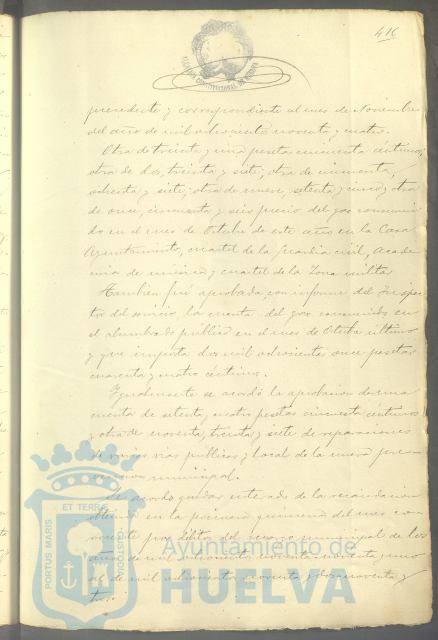 416
ALCALDIA CONSTITUCIONAL DE HUELVA
precedente y correspondiente al mes de Noviembre
del año de mil ochocientos noventa y cuatro.
Otra de treinta y una peseta cincuenta céntimos;
otra de dos, treinta y siete; otra de cincuenta,
ochenta y siete; otra de nueve, setenta y cinco; y otra
de once, cincuenta y seis precio del gas consumi-
do en el mes de Octubre de este año en la Casa
Ayuntamiento, cuartel de la Guardia civil, Acade-
mia de música y cuartel de la Zona militar
También fué aprobada, con informe del Inspec-
tor del servicio, la cuenta del gas consumido en
el alumbrado público en el mes de Octubre último
y que importa dos mil ochocientas once pesetas
cuarenta y cuatro céntimos.
Igualmente se acordó la aprobacion de una
cuenta de setenta y cuatro pesetas cincuenta céntimos
y otra de noventa, treinta y siete de reparaciones
de varias vias públicas y local de la nueva
municipal.
Se acordó quedar enterado de la recaudacion
obtenida en la primera quincena del mes co-
rriente por débitos del municipal de los
años de mil ochocientos noventa
de mil ochocientos noventa y dos a noventa y
tres.
PORTUS MARIS
ET TERRAE
CUSTODIA
Ayuntamiento de
HUELVA